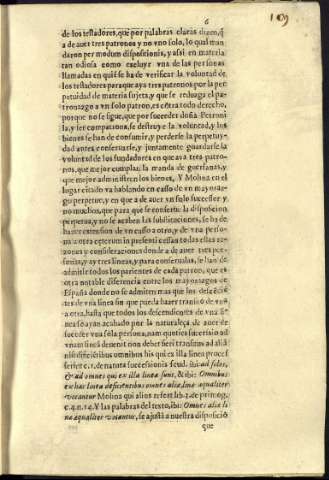 6
109
de los testadores, que por palabras claras dizen, q̃
a de auer tres patronos y no vno solo, lo qual man
daron per modum dispositionis, y assi en materia
tan odiosa como excluyr vna de las personas
llamadas en quiẽ se ha de verificar la voluntad de
los testadores para que aya tres patronos por la per
petuidad de materia sujeta, y que se reduzga el pa-
tronazgo a vn solo patron, es cõtra todo derecho,
porque no se sigue, que por suceder doña Petroni
la, y ser compatrona, se destruye la voluntad, y los
bienes se han de consumir, y perderse la perpetuy-
dad antes conseruarse, y juntamente guardarse la
voluntad de los fundadores en que aya tres patro-
nos, que mejor cumplan la manda de guerfanas, o
que mejor administren los bienes, Y Molina en el
lugar citado va hablando en casso de vn mayoraz-
go perpetuo, y en que a de auer vn solo successor y
no muchos, que para que se conserue la disposicion
perpetua, y no se acaben las substituciones, se ha de
hazer extension de vn casso a otro, y de vna perso-
na a otra ceterum in presenti cessan todas estas ra-
zones y consideraciones donde a de auer tres per-
sonas, y ay tres lineas, y para conseruallas, se han de
admitir todos los parientes de cada patron, que es
otra notable diferencia entre los mayorazgos de
España donde no se admiten mas que los descẽdie
tes de vna linea sin que pueda hazer transito de vna
a otra, hasta que todos los descendientes de vna li-
nea se ayan acabado por la naturaleça de auer de
suceder vna sola persona, nam quoties successio ad
vnam lineã deuenit non debet fieri transitus ad aliã
nisi deficiẽtibus omnibus his qui ex illa linea proces
serũt c. 1. de natura successionis feud. ibi: ad solos,
& ad omnes qui ex illa linea sunt, & ibi: Omnibus
ex hac linea deficientibus omnes aliæ lineæ æqualiter
vocantur Molina qui alios refert lib. 3. de primog.
c. 4. n. 14. Y las palabras del texto, ibi: Omnes aliæ li
neæ æqualiter vocantur, se ajusta a nuestra disposiciõ
que